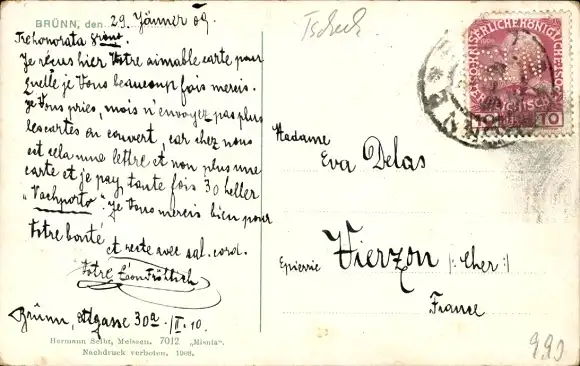 BRÜNN, den 29. Jänner 09.
Tscheck
Je reçus hier Votre aimable carte pour
quelle je Vous beaucoup fois merci.
Je Vous pries, mois n'envoyez pas plus
les cartes ou couvert, car chez nous
est cela une lettre et non plus une
carte et je pay, toute fois 30 heller
"Nachporto". Je Vous mercis bien pour
Votre bonté
et reste avec sal. cord.
Votre
Brünn, 30a /II. 10.
Hermann Seibt, Meissen. 7012 „Mionta“.
Nachdruck verboten. 1908.
Madame
Eva Delas
Epicerie Vierzon /: Cher :/
France
10 10